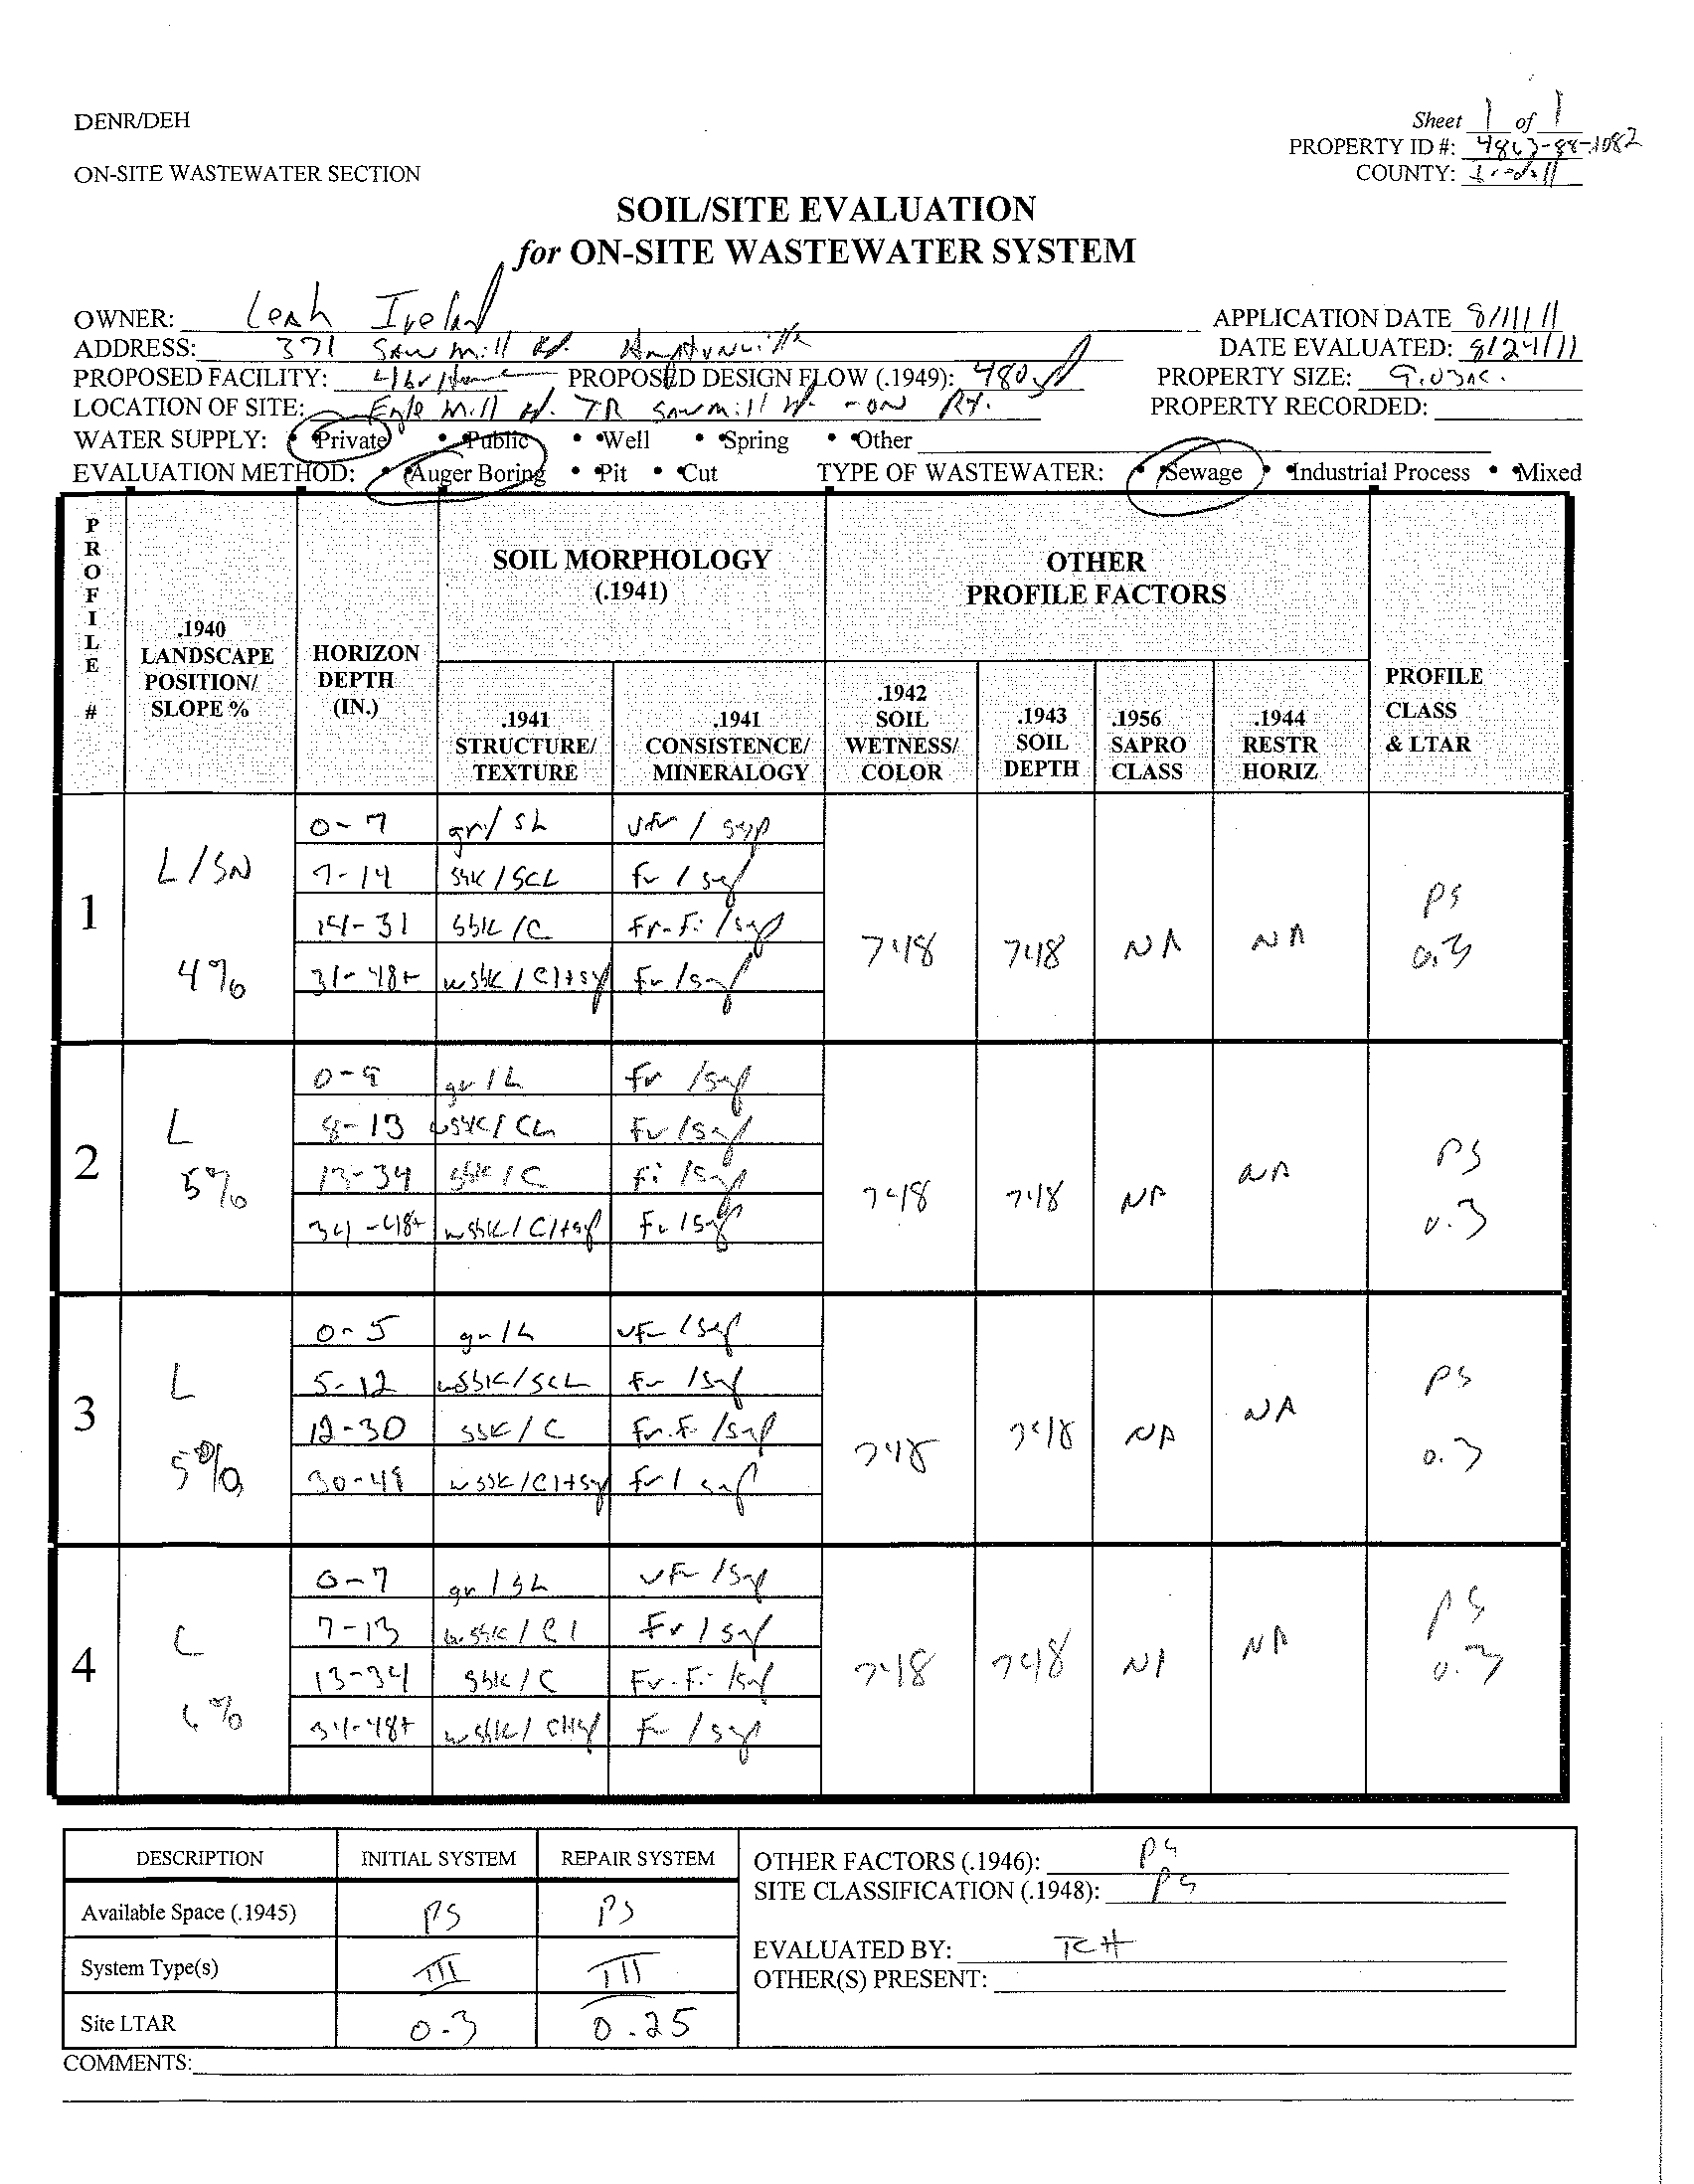 DENR/DEH
Sheet 1 of 1
PROPERTY ID #: 4863-88-1082
ON-SITE WASTEWATER SECTION
COUNTY: Iredell
SOIL/SITE EVALUATION
for ON-SITE WASTEWATER SYSTEM
OWNER: Leah Ireland APPLICATION DATE 8/11/11
ADDRESS: 371 Sawmill Rd. DATE EVALUATED: 8/24/11
PROPOSED FACILITY: PROPOSED DESIGN FLOW (.1949): 480 PROPERTY SIZE: 9.03ac.
LOCATION OF SITE: Mill Rd. TR Sawmill Rd. - on Rt. PROPERTY RECORDED:
WATER SUPPLY: • Private • Public • Well • Spring • Other
EVALUATION METHOD: • Auger Boring • Pit • Cut TYPE OF WASTEWATER: • Sewage • Industrial Process • Mixed
PROFILE #
.1940 LANDSCAPE POSITION/ SLOPE %
HORIZON DEPTH (IN.)
SOIL MORPHOLOGY (.1941)
OTHER PROFILE FACTORS
.1941 STRUCTURE/ TEXTURE
.1941 CONSISTENCE/ MINERALOGY
.1942 SOIL WETNESS/ COLOR
.1943 SOIL DEPTH
.1956 SAPRO CLASS
.1944 RESTR HORIZ
PROFILE CLASS & LTAR
1 L/SN 4% >48 >48 NA NA PS 0.3
0-7 gr/SL vfr/
7-14 sbk/SCL fr/
14-31 sbk/C fr-fi/
31-48+ wsbk/ fr/
2 L 5% >48 >48 NA NA PS 0.3
gr/L fr/
8-13 wsbk/CL fr/
13-34 sbk/C fi/
34-48+ wsbk/ fr/
3 L 5% >48 >48 NA NA PS 0.3
0-5 gr/L vfr/
5-12 wsbk/SCL fr/
12-30 sbk/C fr-fi/
30-48 wsbk/ fr/
4 L >48 >48 NA NA PS 0.3
0-7 gr/SL vfr/
7-13 wsbk/Cl fr/
13-34 sbk/C fr-fi/
34-48+ wsbk/ fr/
DESCRIPTION INITIAL SYSTEM REPAIR SYSTEM
Available Space (.1945) PS PS
System Type(s) III III
Site LTAR 0.3 0.25
OTHER FACTORS (.1946): PS
SITE CLASSIFICATION (.1948): PS
EVALUATED BY:
OTHER(S) PRESENT:
COMMENTS: